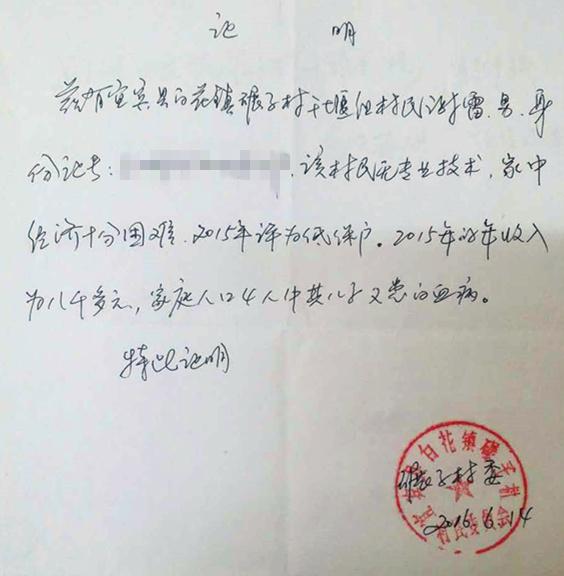 证 明
兹有宜宾县白花镇碾子村干堰组村民 男、身
份证号: 该村民无专业技术,家中
经济十分困难、2015年评为低保户。2015年的年收入
为八千多元,家庭人口4人中其儿子又患白血病。
特此证明
碾子村委
2016.6.14
宜宾县白花镇碾子村村民委员会